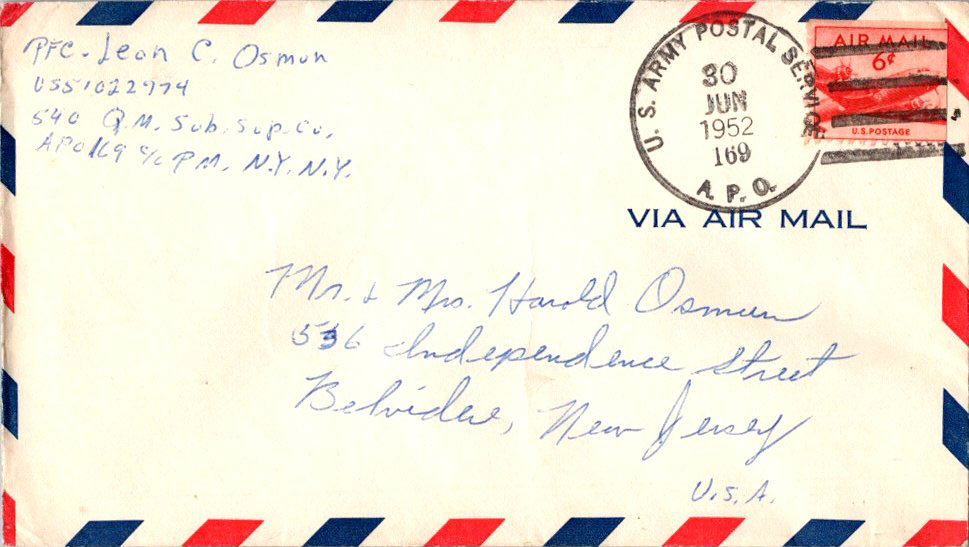 PFC. Leon C. Osmun
US51022974
540 Q.M. Sub. Sup. Co.
APO 169 c/o P.M. N.Y. N.Y.
U. S. ARMY POSTAL SERVICE
30
JUN
1952
169
A. P. O.
AIR MAIL
6¢
U.S. POSTAGE
VIA AIR MAIL
Mr. & Mrs. Harold Osmun
536 Independence Street
Belvidere, New Jersey
U.S.A.